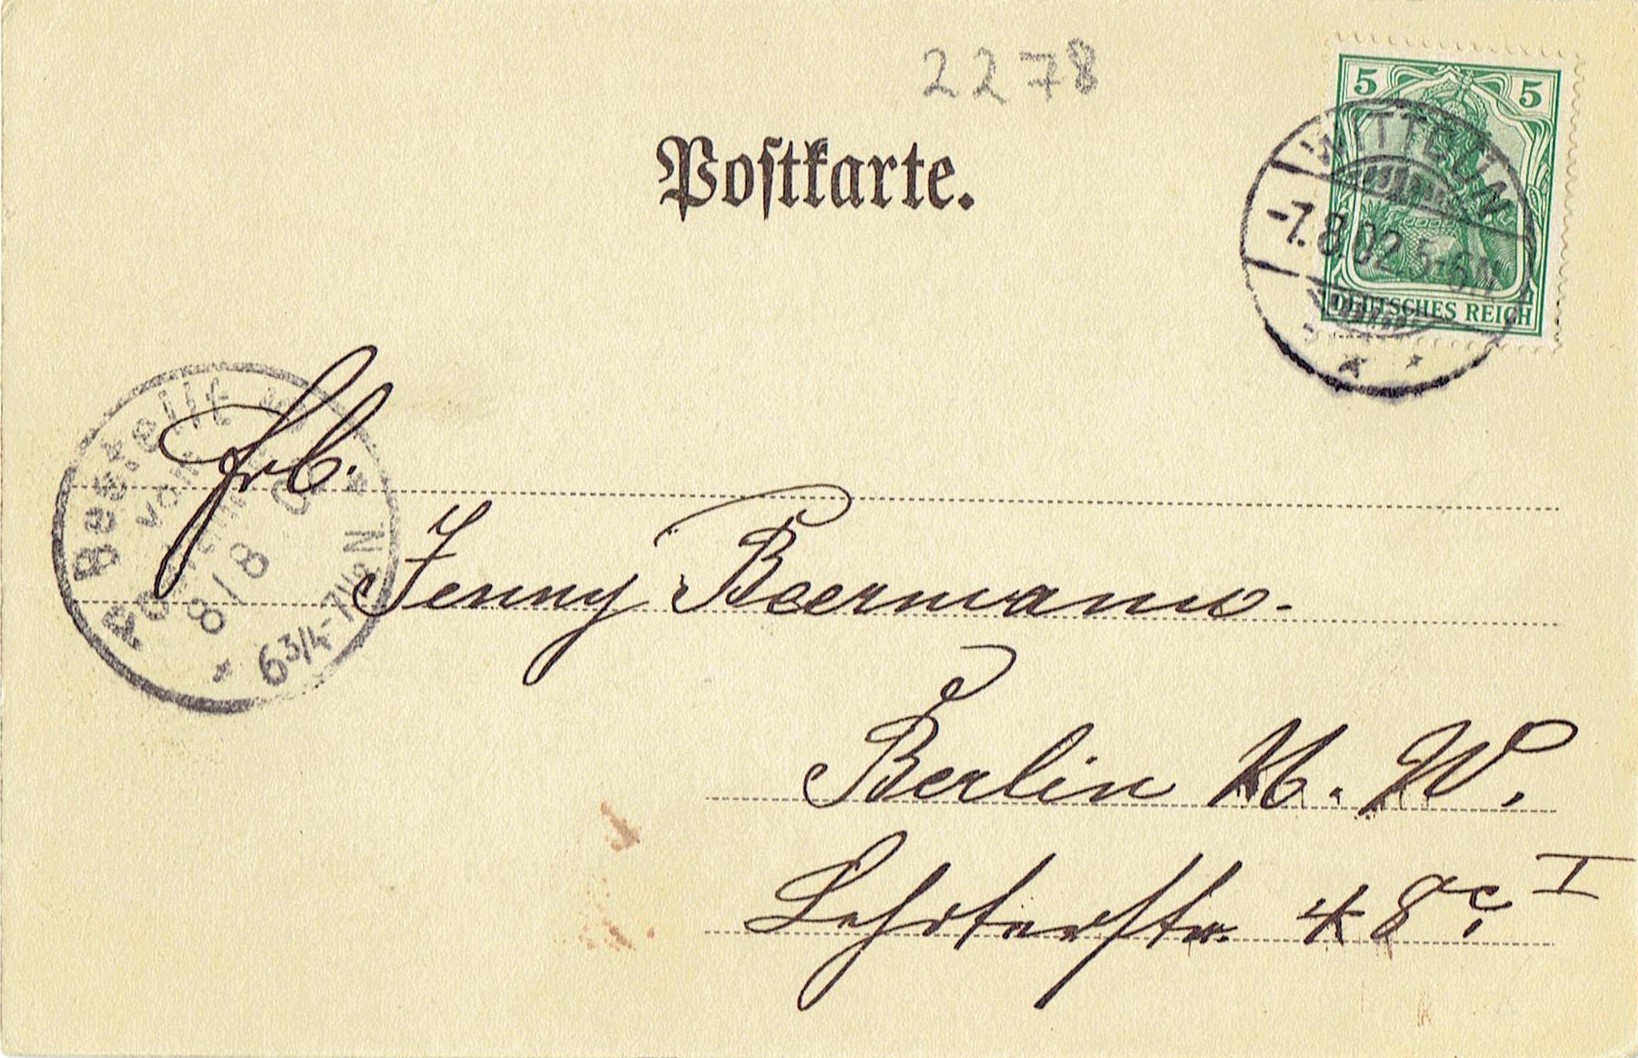 2278
Postkarte.
5 5
DEUTSCHES REICH
WITTDÜN
-7.8.02 5-6N
Bestellt
vom
Postamte
8/8
6¾-7½N
Frl.
Jenny Beermann.
Berlin N. W.
Lehrterstr. 48c, I